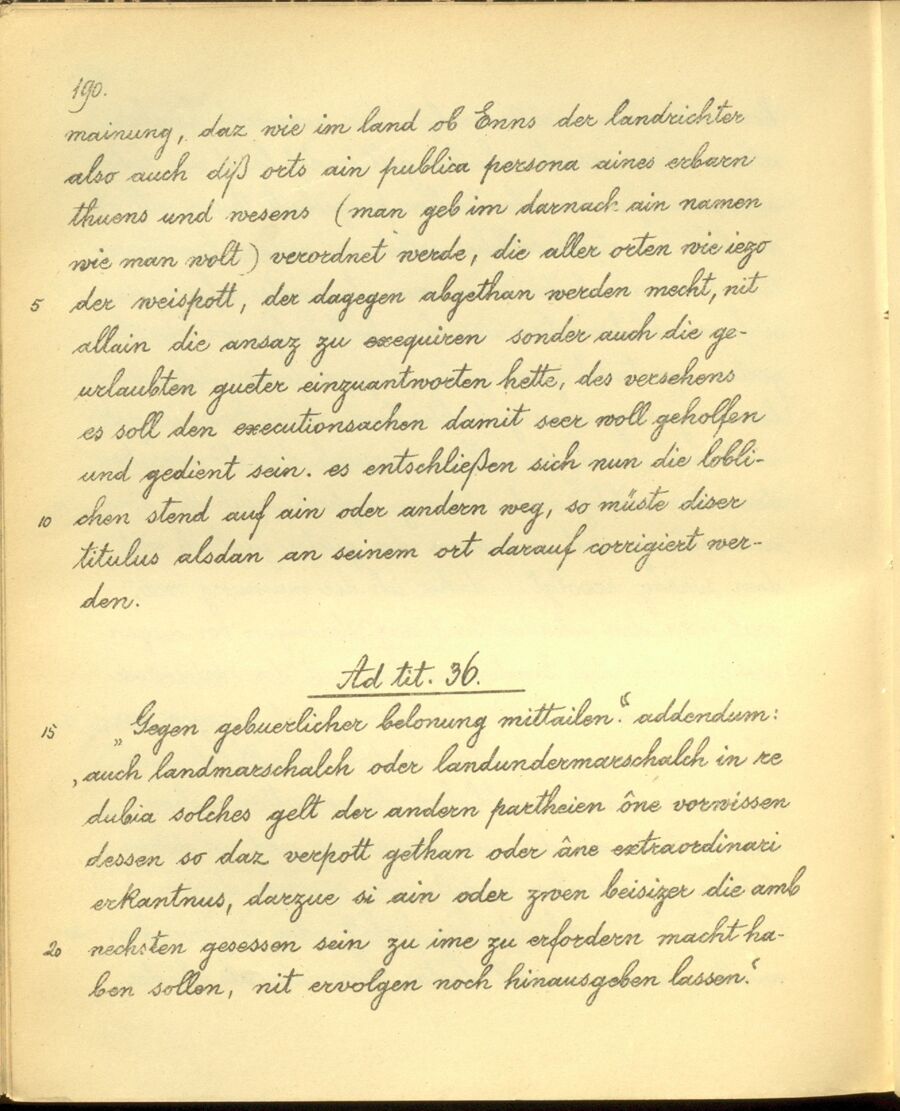 190.
mainung, daz wie im land ob Enns der landrichter
also auch diß orts ain publica persona aines erbarn
thuens und wesens (man geb im darnach ain namen
wie man wolt) verordnet werde, die aller orten wie iezo
5 der weispott, der dagegen abgethan werden mecht, nit
allain die ansaz zu exequiren sonder auch die ge-
urlaubten gueter einzuantworten hette, des versehens
es soll den executionsachen damit seer woll geholfen
und gedient sein. es entschließen sich nun die lobli-
10 chen stend auf ain oder andern weg, so müste diser
titulus alsdan an seinem ort darauf corrigiert wer-
den.
Ad tit. 36.
15 „Gegen gebuerlicher belonung mittailen.“ addendum:
‚auch landmarschalch oder landundermarschalch in re
dubia solches gelt der andern partheien öne vorwissen
dessen so daz verpott gethan oder âne extraordinari
erkantnus, darzue si ain oder zwen beisizer die amb
20 nechsten gesessen sein zu ime zu erfordern macht ha-
ben sollen, nit ervolgen noch hinausgeben lassen.‘